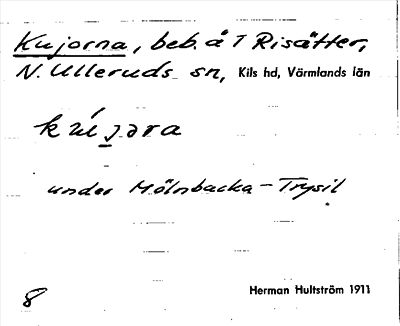 Kujorna, beb. å 1 Risätter,
N. Ulleruds sn, Kils hd, Värmlands län
kúȷ̱ɔra
under Mölnbacka-Trysil
8
Herman Hultström 1911